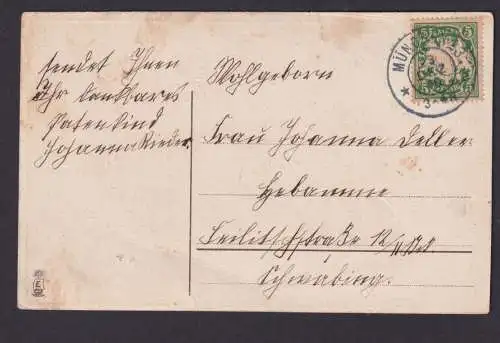 sendet Ihnen
Ihr dankbares
Patenkind
Johanna Rieder.
Wohlgeborn
Frau Johanna Deller
Hebamme
Feilitschstraße 12/
Schwabing.
MÜN
5 5